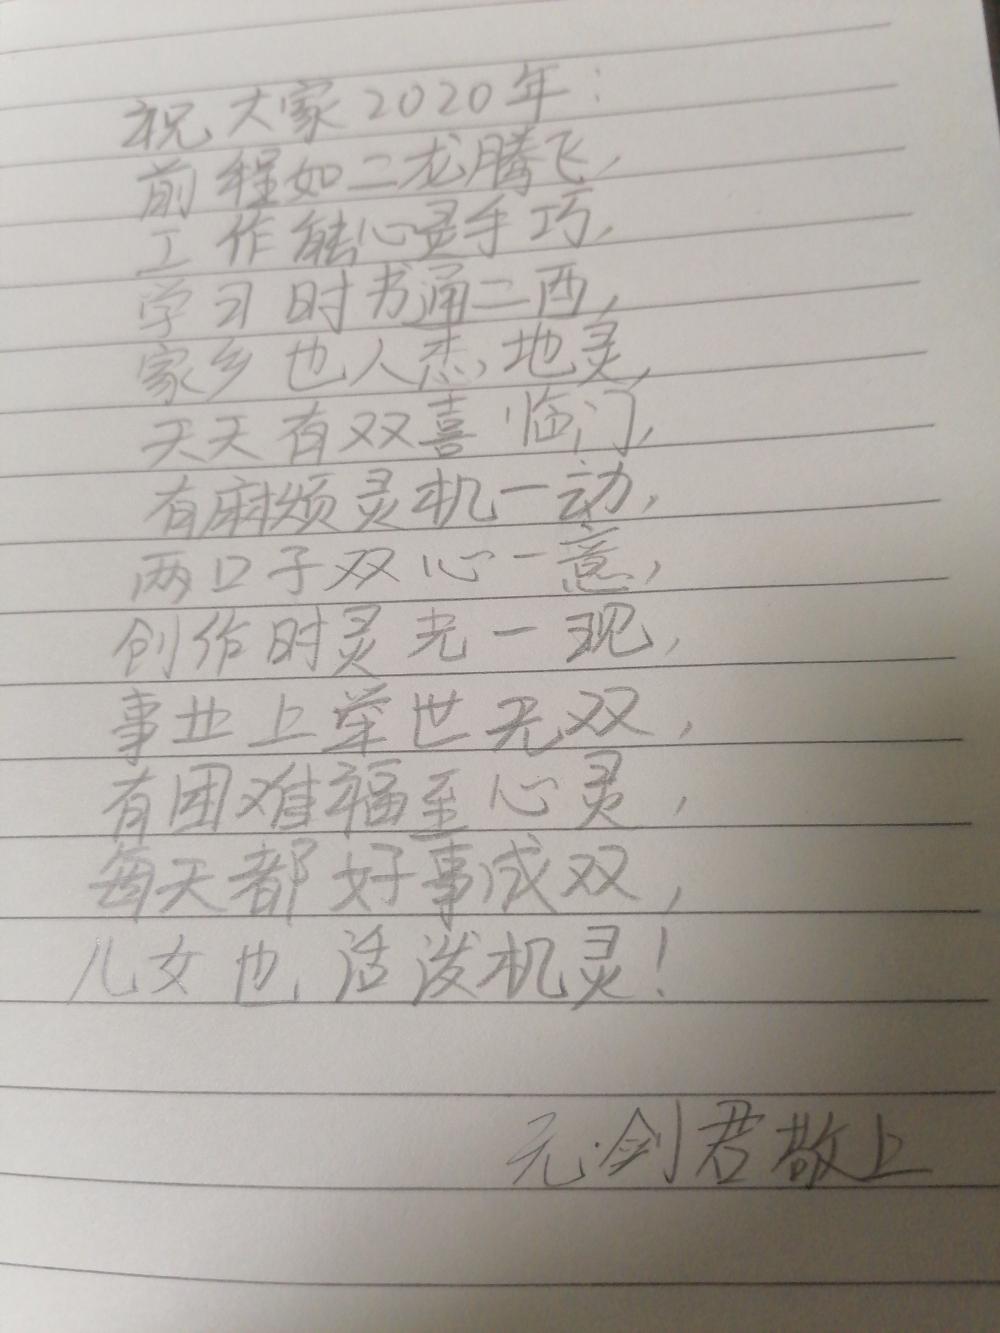 祝大家2020年:
前程如二龙腾飞,
工作能心灵手巧,
学习时书通二酉,
家乡也人杰地灵,
天天有双喜临门,
有麻烦灵机一动,
两口子双心一意,
创作时灵光一现,
事业上举世无双,
有困难福至心灵,
每天都好事成双,
儿女也活泼机灵!
无·剑君敬上